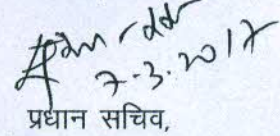 7-3-2017
प्रधान सचिव,